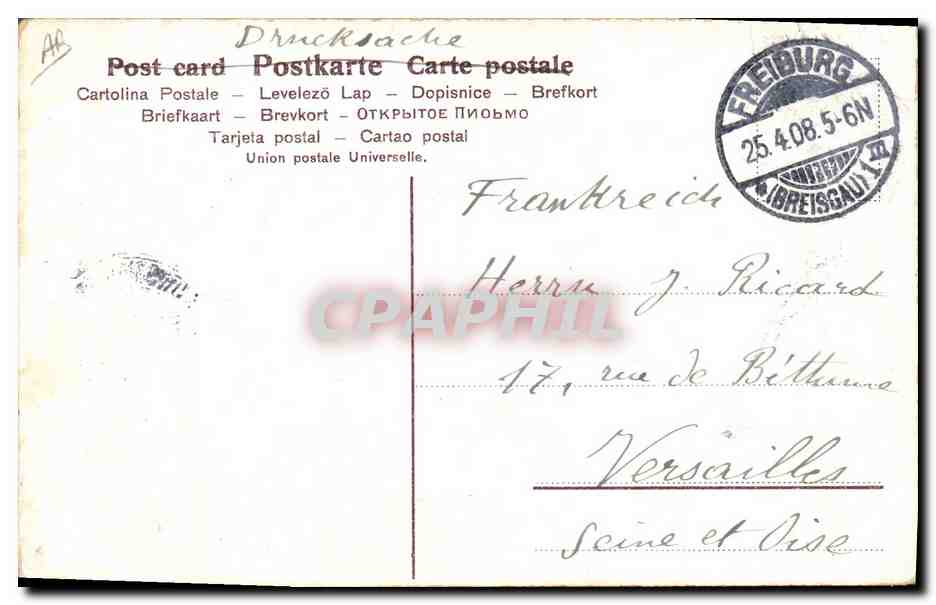 AB
Drucksache
Post card Postkarte Carte postale
Cartolina Postale – Levelező Lap – Dopisnice – Brefkort
Briefkaart – Brevkort – ОТКРЫТОЕ ПИСЬМО
Tarjeta postal – Cartao postal
Union postale Universelle.
FREIBURG
25.4.08.5-6N
* (BREISGAU) 1
Frankreich
Herrn J. Ricard
CPAPHIL
17, rue de Béthune
Versailles
Seine et Oise